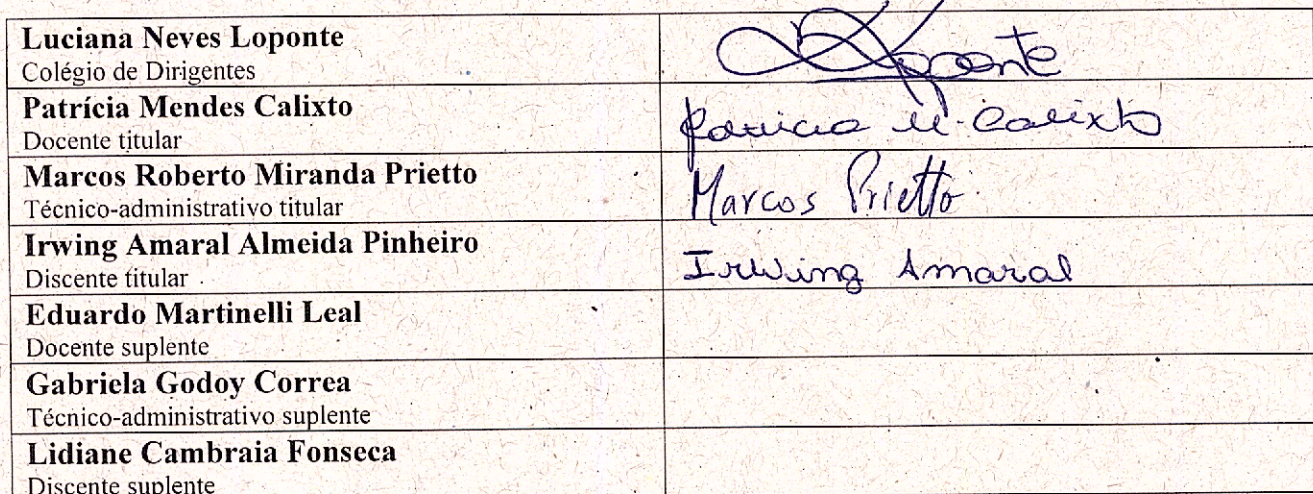 Luciana Neves Loponte
Colégio de Dirigentes
Loponte
Patrícia Mendes Calixto
Docente titular
Patricia M. Calixto
Marcos Roberto Miranda Prietto
Técnico-administrativo titular
Marcos Prietto
Irwing Amaral Almeida Pinheiro
Discente titular
Irwing Amaral
Eduardo Martinelli Leal
Docente suplente
Gabriela Godoy Correa
Técnico-administrativo suplente
Lidiane Cambraia Fonseca
Discente suplente